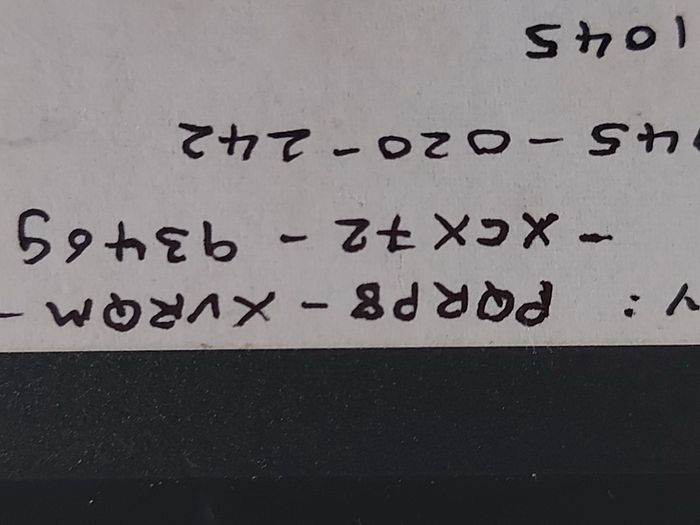 Y : PQRP8 - XVRQM -
- XCX72 - 93469
45 - 020 - 242
1045